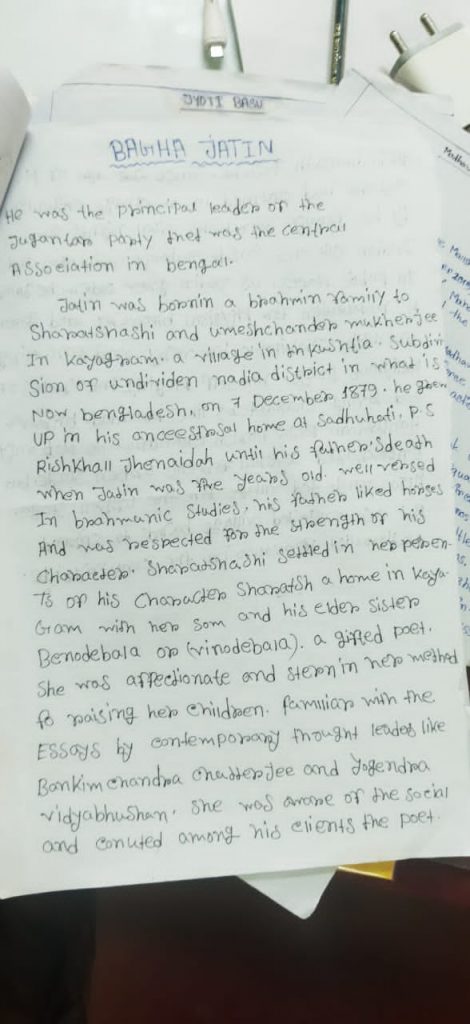 JYOTI BASU
BAGHA JATIN
He was the principal leader of the
Jugantar party thet was the central
Association in bengal.
Jatin was bornin a brahmin family to
Sharatshashi and umeshchander mukherjee
In kayagram. a village in
Sion of undividen nadia district in what is
Now, bengladesh, on 7 December 1879. he grew
UP in his anceestrsal home at Sadhuhati, P.S
RishKhali Jhenaidah until his father'sdeath
when Jatin was five years old. well-versed
In brahmanic studies. his father liked horses
And was respected for the strength of his
Character. Sharatshashi settled in her peren-
Ts of his Character Sharatsh a home in kaya-
Gram with her som and his elder sister
Benodebala or (vinodebala). a gifted poet.
She was affectionate and stern in her method
fo raising her children. familiar with the
ESSays by contemporary thought leades like
Bankimchandra chatterjee and Yogendra
vidyabhushan. She was aware of the social
and conuted among his clients the poet.